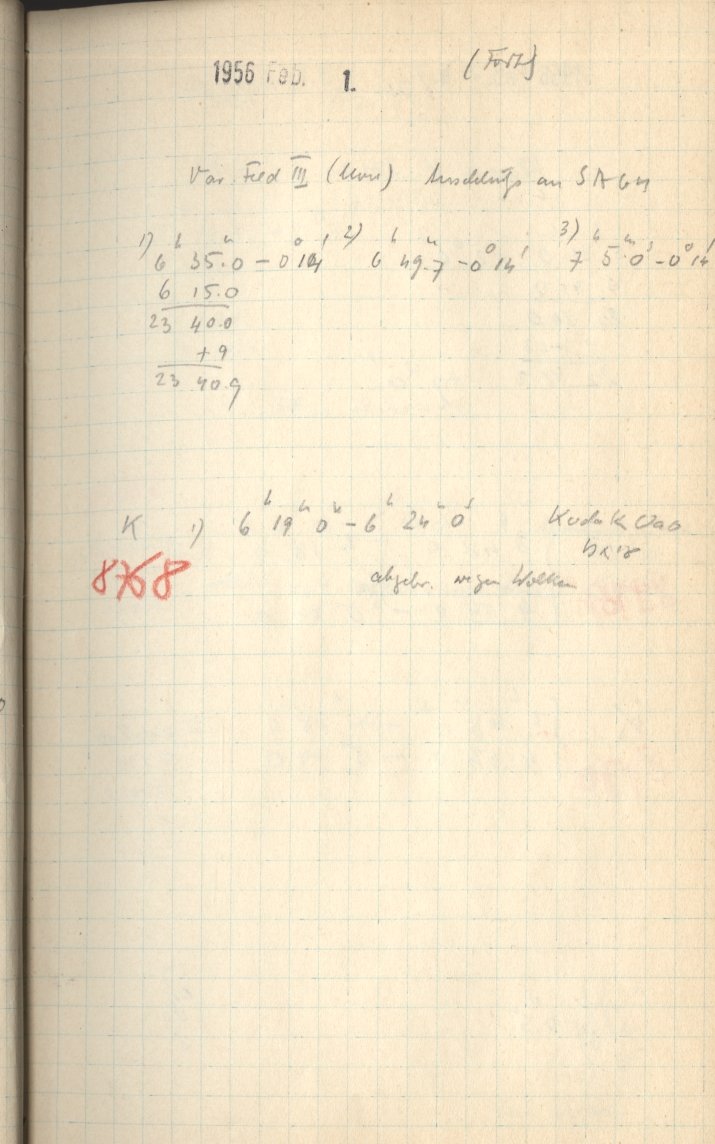 1956 Feb. 1. (Forts)
Var. Feld III (Mon) Anschluß an SA 64
1) 6h 35.m0 - 0° 14' 2) 6h 49.m7 - 0° 14' 3) 7h 5.m0 - 0° 14'
6 15.0
23 40.0
+9
23 40.9
K 1) 6h 19m 0s - 6h 24m 0s Kodak Oao
8768 9x12
abgebr. wegen Wolken